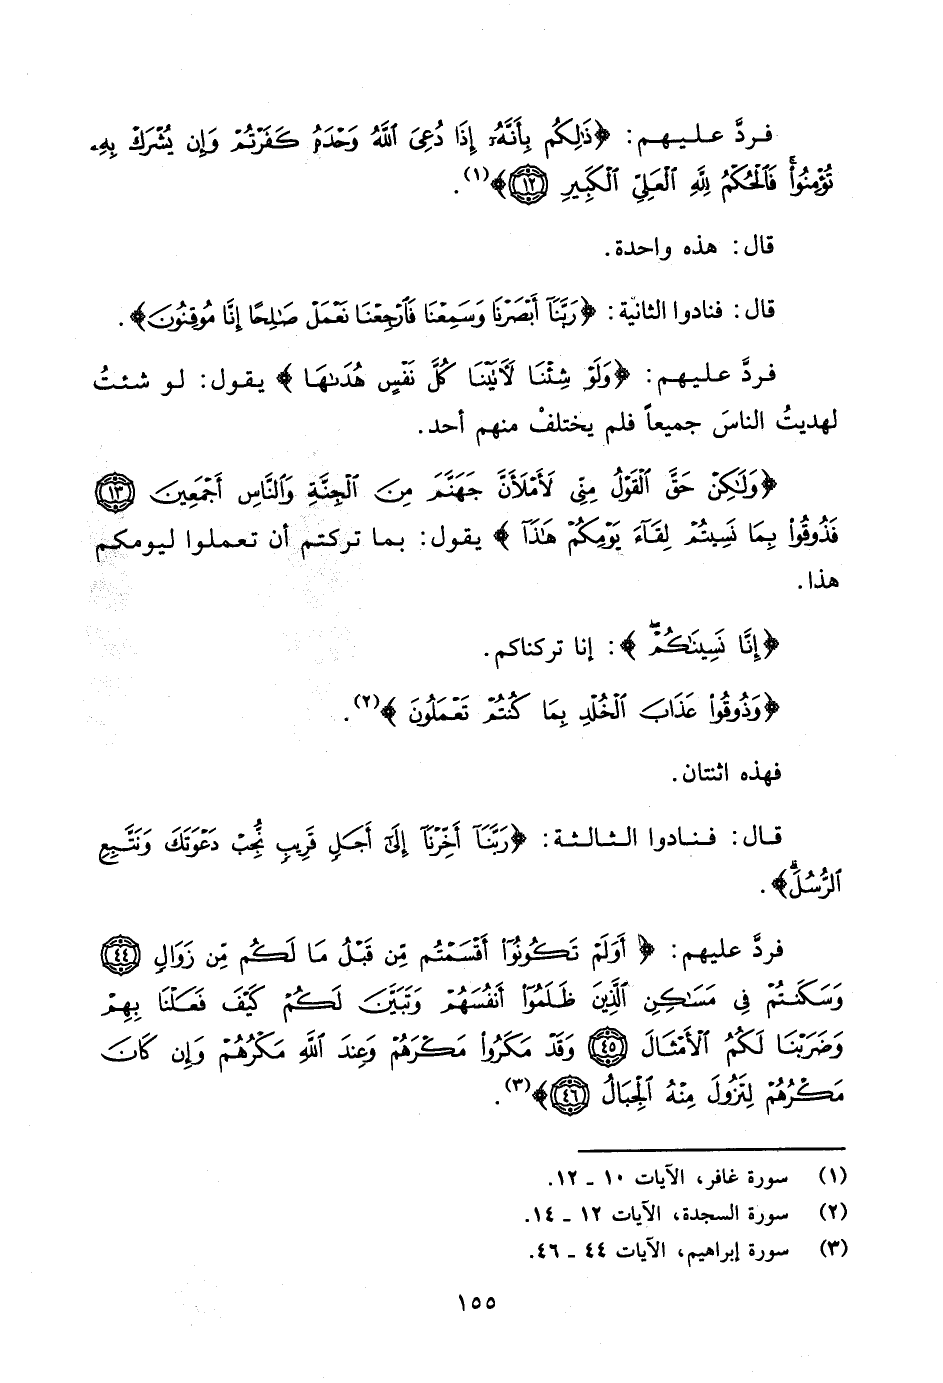 فردَّ عليهم: ﴿ذَٰلِكُم بِأَنَّهُۥٓ إِذَا دُعِىَ ٱللَّهُ وَحْدَهُۥ كَفَرْتُمْ وَإِن يُشْرَكْ بِهِۦ
تُؤْمِنُوا۟ۚ فَٱلْحُكْمُ لِلَّهِ ٱلْعَلِىِّ ٱلْكَبِيرِ ١٢﴾(١).
قال: هذه واحدة.
قال: فنادوا الثانية: ﴿رَبَّنَآ أَبْصَرْنَا وَسَمِعْنَا فَٱرْجِعْنَا نَعْمَلْ صَٰلِحًا إِنَّا مُوقِنُونَ﴾.
فردَّ عليهم: ﴿وَلَوْ شِئْنَا لَءَاتَيْنَا كُلَّ نَفْسٍ هُدَىٰهَا﴾ يقول: لو شئتُ
لهديتُ الناسَ جميعاً فلم يختلفْ منهم أحد.
﴿وَلَٰكِنْ حَقَّ ٱلْقَوْلُ مِنِّى لَأَمْلَأَنَّ جَهَنَّمَ مِنَ ٱلْجِنَّةِ وَٱلنَّاسِ أَجْمَعِينَ ١٣
فَذُوقُوا۟ بِمَا نَسِيتُمْ لِقَآءَ يَوْمِكُمْ هَٰذَآ﴾ يقول: بما تركتم أن تعملوا ليومكم
هذا.
﴿إِنَّا نَسِينَٰكُمْۖ﴾: إنا تركناكم.
﴿وَذُوقُوا۟ عَذَابَ ٱلْخُلْدِ بِمَا كُنتُمْ تَعْمَلُونَ﴾(٢).
فهذه اثنتان.
قال: فنادوا الثالثة: ﴿رَبَّنَآ أَخِّرْنَآ إِلَىٰٓ أَجَلٍ قَرِيبٍ نُّجِبْ دَعْوَتَكَ وَنَتَّبِعِ
ٱلرُّسُلَۗ﴾.
فردَّ عليهم: ﴿أَوَلَمْ تَكُونُوٓا۟ أَقْسَمْتُم مِّن قَبْلُ مَا لَكُم مِّن زَوَالٍ ٤٤
وَسَكَنتُمْ فِى مَسَٰكِنِ ٱلَّذِينَ ظَلَمُوٓا۟ أَنفُسَهُمْ وَتَبَيَّنَ لَكُمْ كَيْفَ فَعَلْنَا بِهِمْ
وَضَرَبْنَا لَكُمُ ٱلْأَمْثَالَ ٤٥ وَقَدْ مَكَرُوا۟ مَكْرَهُمْ وَعِندَ ٱللَّهِ مَكْرُهُمْ وَإِن كَانَ
مَكْرُهُمْ لِتَزُولَ مِنْهُ ٱلْجِبَالُ ٤٦﴾(٣).
(١) سورة غافر، الآيات ١٠ ـ ١٢.
(٢) سورة السجدة، الآيات ١٢ ـ ١٤.
(٣) سورة إبراهيم، الآيات ٤٤ ـ ٤٦.
١٥٥